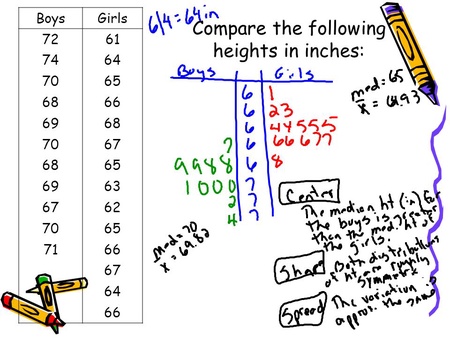 Boys Girls
72 61
74 64
70 65
68 66
69 68
70 67
68 65
69 63
67 62
70 65
71 66
67
64
66
6|4 = 64 in
Compare the following
heights in inches:
Boys Girls
6 1
6 2 3
6 4 4 5 5 5
7 6 6 6 6 7 7
9 9 8 8 6 8
1 0 0 0 7
2 7
4 7
med = 65
x̄ = 64.93
med = 70
x̄ = 69.82
Center
The median ht (in) for
the boys is greater
than the med. ht of
the girls.
Shape
Both distributions
of ht are roughly
symmetric
Spread
The variation is
approx. the same